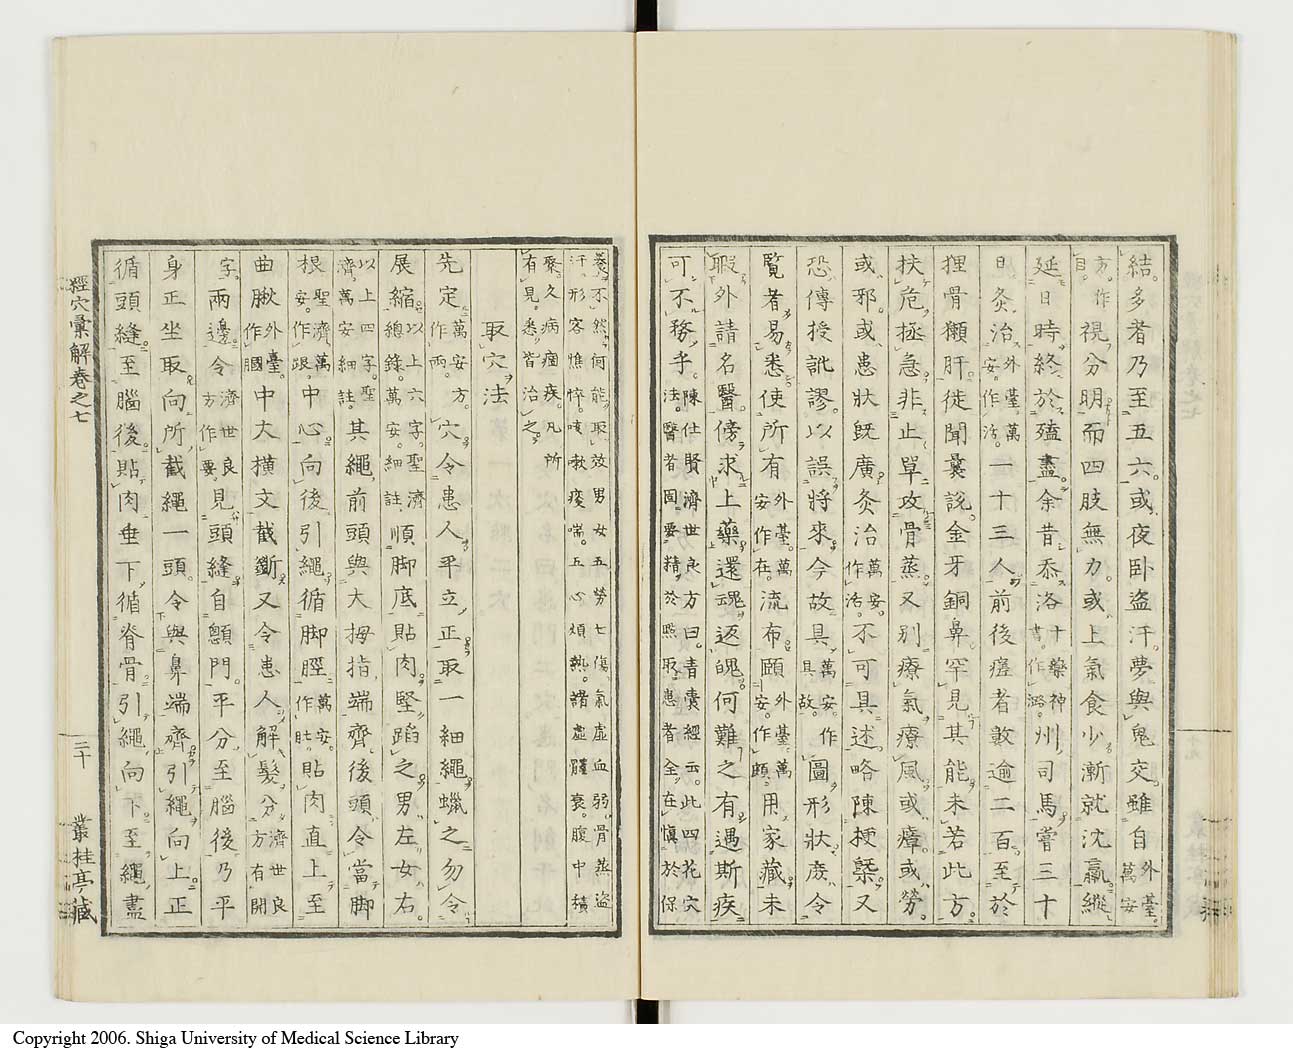 結。多者乃至五六。或夜臥盜汗。夢與鬼交。雖自外臺。萬安
方。作目。視分明。而四肢無力。或上氣食少。漸就沈羸。縱
延日時。終於殪盡。余昔忝洛十藥神書。作潞。州司馬。嘗三十
日。灸治外臺。萬安。作活。一十三人。前後瘥者數逾二百。至於
狸骨獺肝。徒聞曩說。金牙銅鼻。罕見其能。未若此方。
扶危。拯急。非止單攻骨蒸。又別療氣療風。或瘴。或勞。
或邪。或患狀既廣。灸治萬安。作活。不可具述。略陳梗槩。又
恐傳授訛謬。以誤將來。今故具萬安。作具故。圖形狀。庶令
覽者易悉。使所有外臺。萬安作在。流布。頤外臺。萬安。作頗。用家藏。未
暇外請名醫。傍求上藥。還魂返魄。何難之有。遇斯疾
可不務乎。陳仕賢濟世良方曰。青囊經云。此四花穴法。醫者固要精於照取。患者全在愼於保
養。不然何能取效。男女五勞七傷。氣虛血弱。骨蒸盜
汗。形容憔悴。咳嗽痰喘。五心煩熱。諸虛羸衰。腹中積
聚。久病痼疾。凡所
有見。悉皆治之。
取穴法
先定萬安方。作兩。穴。令患人平立。正取一細繩。蠟之勿令
展縮。以上六字。聖濟總錄。萬安。細註。順脚底貼肉。堅蹈之。男左女右。
以上四字。聖濟。萬安細註。其繩前頭與大拇指端齊。後頭令當脚
根聖濟。萬安。作跟。中心。向後引繩。循脚脛萬安。作肚。貼肉直上至
曲䐐外臺。作膕。中大橫文截斷。又令患人解髮。分濟世良方有開
字。兩邊。令濟世良方作要。見頭縫。自顖門平分。至腦後。乃平
身正坐。取向所截繩一頭。令與鼻端齊。引繩向上。正
循頭縫至腦後。貼肉垂下。循脊骨。引繩向下。至繩盡
經穴彙解卷之七
二十
叢桂亭藏
Copyright 2006. Shiga University of Medical Science Library